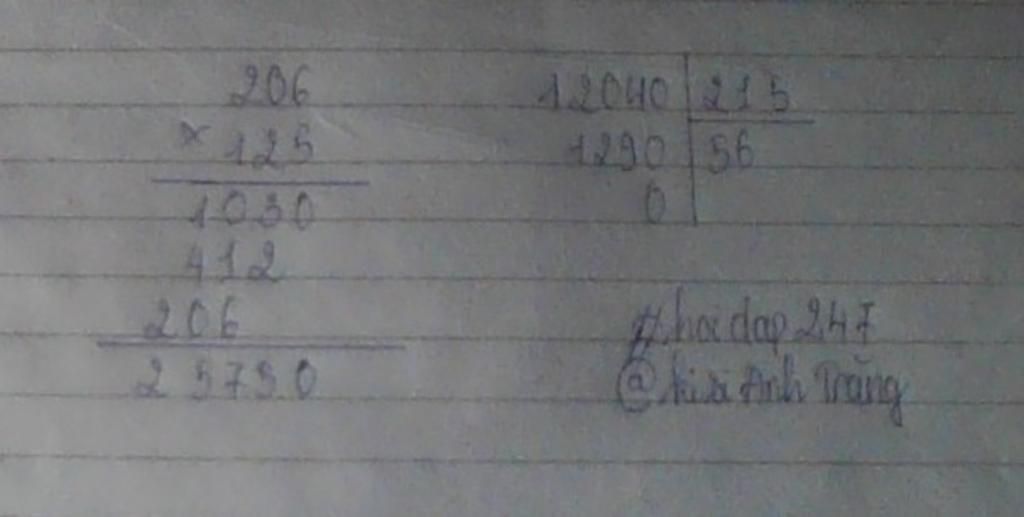 206
× 125
1030
412
206
25750
12040 215
1290 56
0
#hoidap247
@kisiAnhTrăng